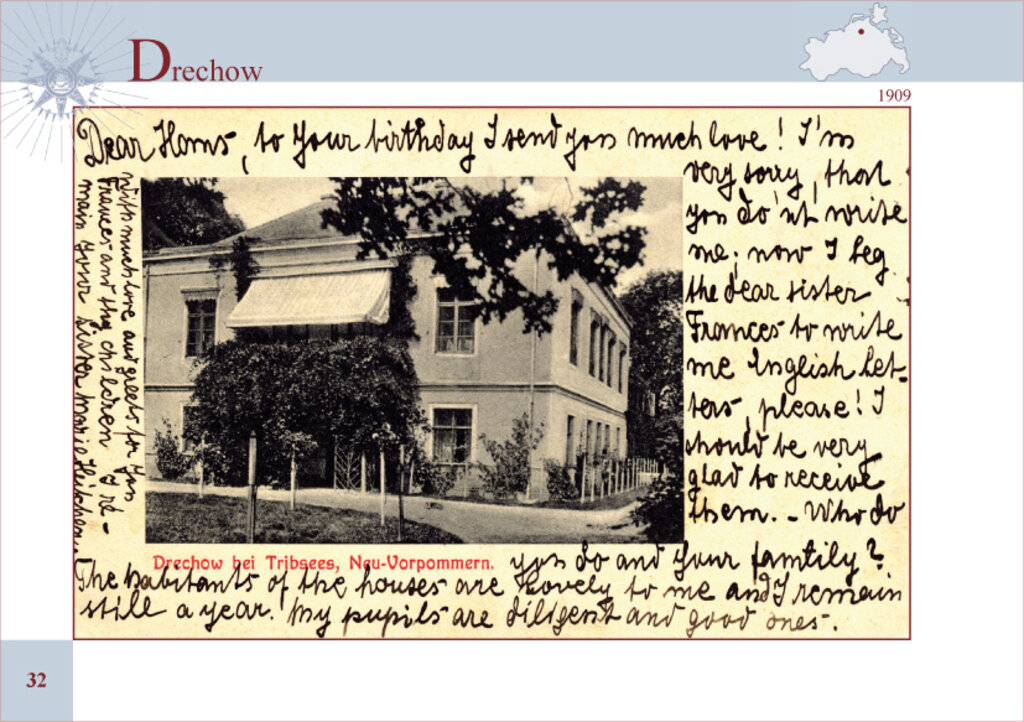 Drechow
1909
Dear Hans, to Your birthday I send you much love! I'm
very sorry, that
you do'nt write
me; now I beg
the dear sister
Frances to write
me English Let-
ters, please! I
should be very
glad to receive
them. - Who do
you do and your famtily?
The habitants of the houses are lovely to me and I remain
still a year. My pupils are diligent and good ones.
With much love and greets to you
Frances and the children I re-
main Your sister Marie
Drechow bei Tribsees, Neu-Vorpommern.
32